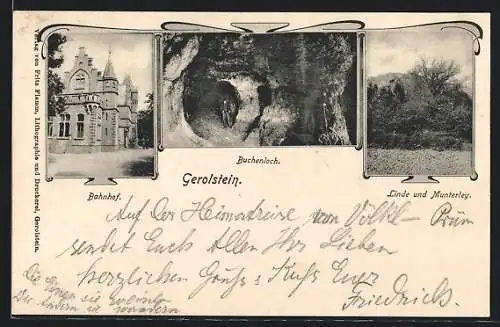 Verlag von Fritz Flamm, Lithographie und Druckerei, Gerolstein.
Bahnhof.
Buchenloch.
Linde und Munterley.
Gerolstein.
Auf der Heimatreise von Prüm
sendet Euch Allen Ihr Lieben
herzlichen Gruß & Kuß Euer
Friedrich.
Die
Die andern sie